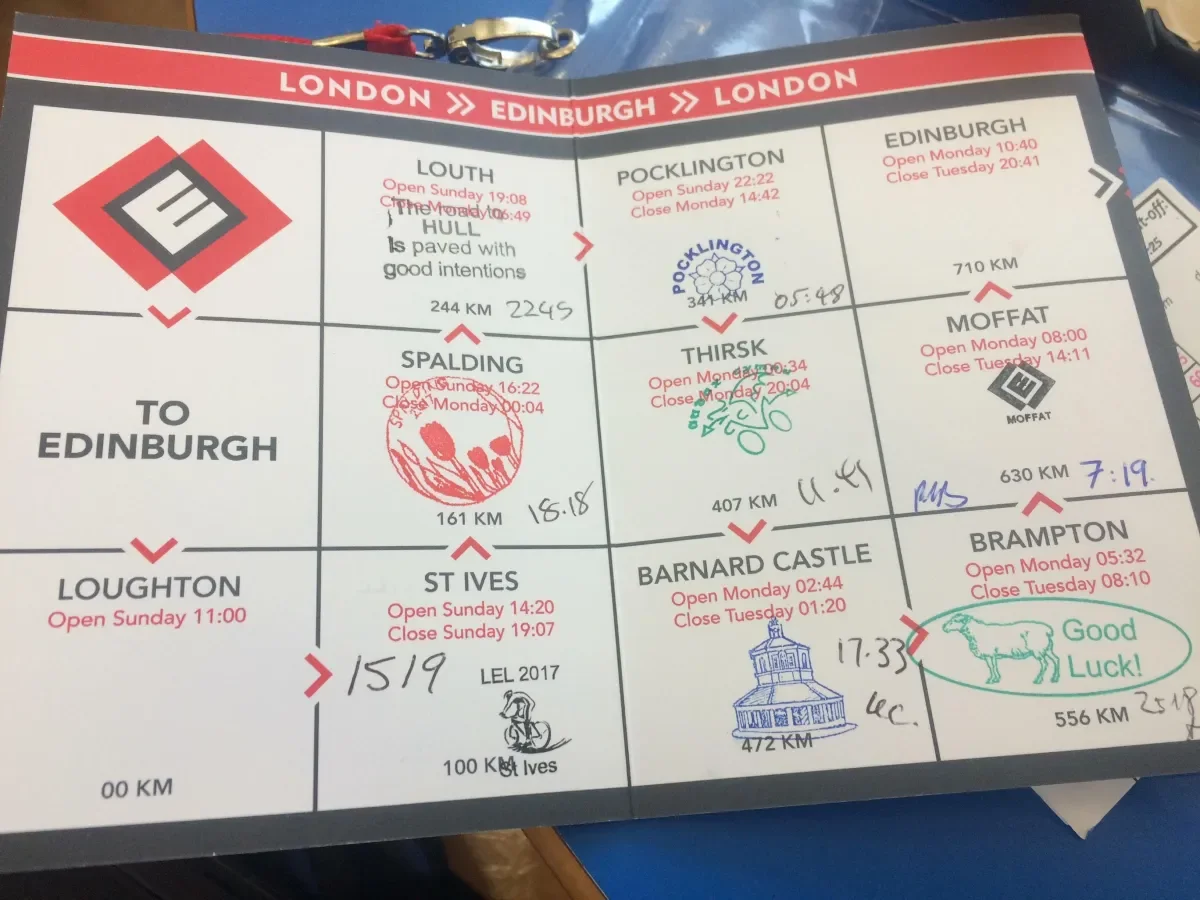 LONDON >> EDINBURGH >> LONDON
TO
EDINBURGH
LOUGHTON
Open Sunday 11:00
00 KM
ST IVES
Open Sunday 14:20
Close Sunday 19:07
1519
LEL 2017
100 KM
St Ives
SPALDING
Open Sunday 16:22
Close Monday 00:04
161 KM
18.18
LOUTH
Open Sunday 19:08
Close Monday 06:49
The road to
HULL
Is paved with
good intentions
244 KM
2245
POCKLINGTON
Open Sunday 22:22
Close Monday 14:42
POCKLINGTON
341 KM
05:48
THIRSK
Open Monday 00:34
Close Monday 20:04
407 KM
11.41
BARNARD CASTLE
Open Monday 02:44
Close Tuesday 01:20
17.33
472 KM
BRAMPTON
Open Monday 05:32
Close Tuesday 08:10
Good
Luck!
556 KM
MOFFAT
Open Monday 08:00
Close Tuesday 14:11
MOFFAT
630 KM
7:19.
EDINBURGH
Open Monday 10:40
Close Tuesday 20:41
710 KM